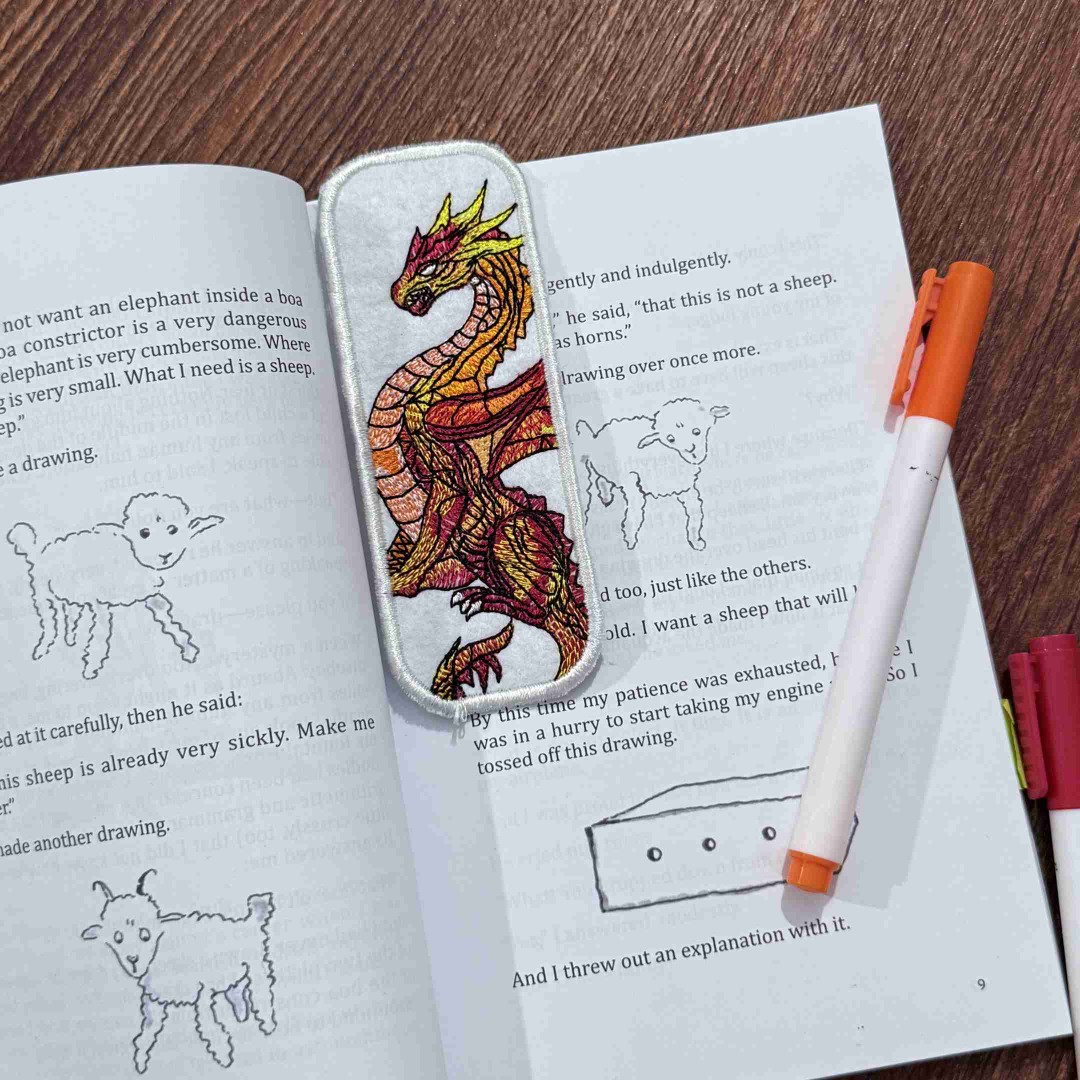 not want an elephant inside a boa
constrictor is a very dangerous
elephant is very cumbersome. Where
is very small. What I need is a sheep.
e a drawing.
ed at it carefully, then he said:
his sheep is already very sickly. Make me
made another drawing.
gently and indulgently.
” he said, “that this is not a sheep.
as horns.”
drawing over once more.
d too, just like the others.
old. I want a sheep that will
By this time my patience was exhausted, I
was in a hurry to start taking my engine So I
tossed off this drawing.
And I threw out an explanation with it.
9